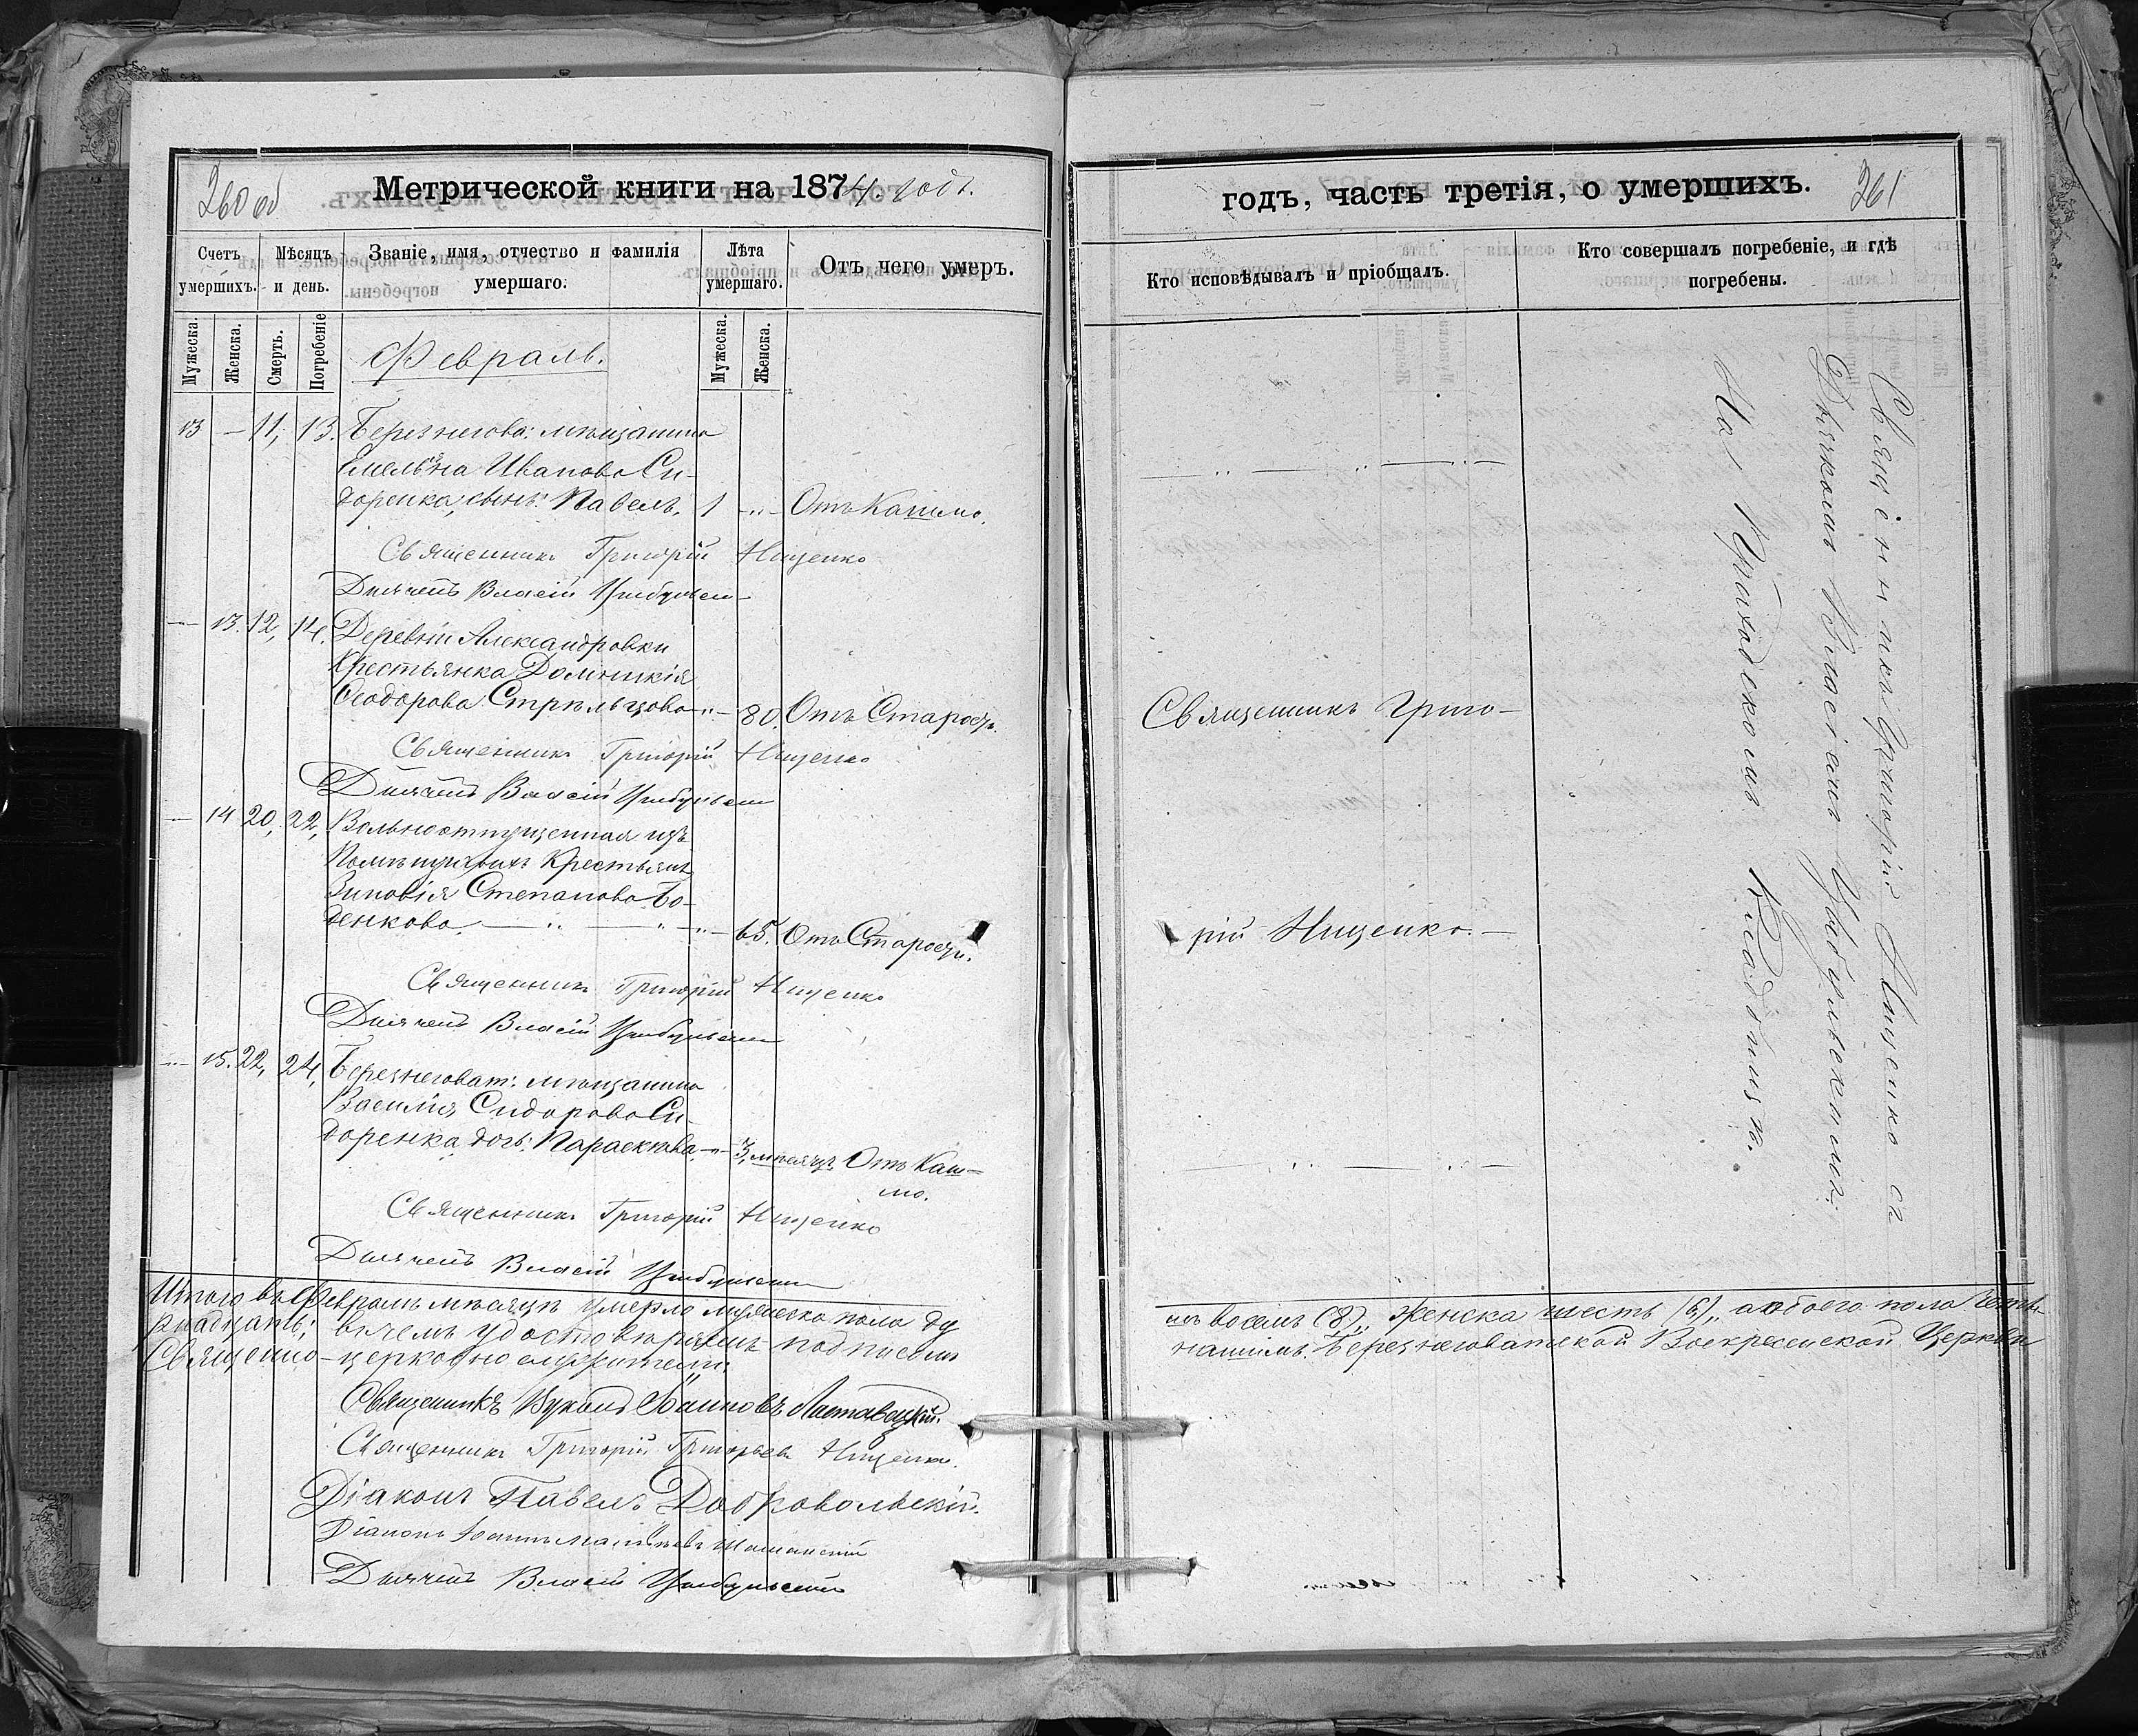 260 об
Метрической книги на 1874. годъ.
Счетъ умершихъ.
Мѣсяцъ и день.
Званіе, имя, отчество и фамилія умершаго.
Лѣта умершаго.
Отъ чего умеръ.
Мужеска.
Женска.
Смерть.
Погребеніе
Февраль.
Мужеска.
Женска.
13 — 11, 13. Березнегова: мѣщанина
Емельяна Иванова Си-
доренка, сынъ Павелъ. 1 -„- Отъ Кашлю.
Священникъ Григорій Нищенко
Дьячекъ Власій Цыбульскій
— 13. 12, 14. Деревни Александровки
Крестьянка Домникія
Ѳеодорова Стрѣльцова -„- 80. Отъ Старости.
Священникъ Григорій Нищенко
Дьячекъ Власій Цыбульскій
— 14 20, 22, Вольноотпущенная изъ
Помѣщичьихъ Крестьянъ
Зиновія Степанова Бо-
денкова. — „ — „ -„- 65. Отъ Старости.
Священникъ Григорій Нищенко
Дьячекъ Власій Цыбульскій
— 15. 22, 24, Березнеговат: мѣщанина
Василія Сидорова Си-
доренка дочь: Параскева -„- 3, мѣсяцъ Отъ Каш-
лю.
Священникъ Григорій Нищенко
Дьячекъ Власій Цыбульскій
Итого въ Февралѣ мѣсяцѣ умерло мужеска пола ду
надцать; въ чемъ удостовѣряемъ подписомъ
Священно-церковнослужители:
Священникъ Іоанновъ
Священникъ Григорій Григорьевъ Нищенко.
Діаконъ Павелъ Добровольскій.
Діаконъ Іоаннъ
Дьячекъ Власій Цыбульскій
годъ, часть третія, о умершихъ.
261
Кто исповѣдывалъ и пріобщалъ.
Кто совершалъ погребеніе, и гдѣ погребены.
— „ — „ — „ —
Священникъ Григо-
рій Нищенко. —
— „ — „ —
Священникъ Григорій Нищенко съ
Дьячкомъ Власіемъ Цыбульскимъ:
На Приходскомъ Кладбищѣ.
шъ восемъ (8)„ Женска шесть (6)„ а обоего пола четы-
нашимъ. Березнеговатской Воскресенской Церкви